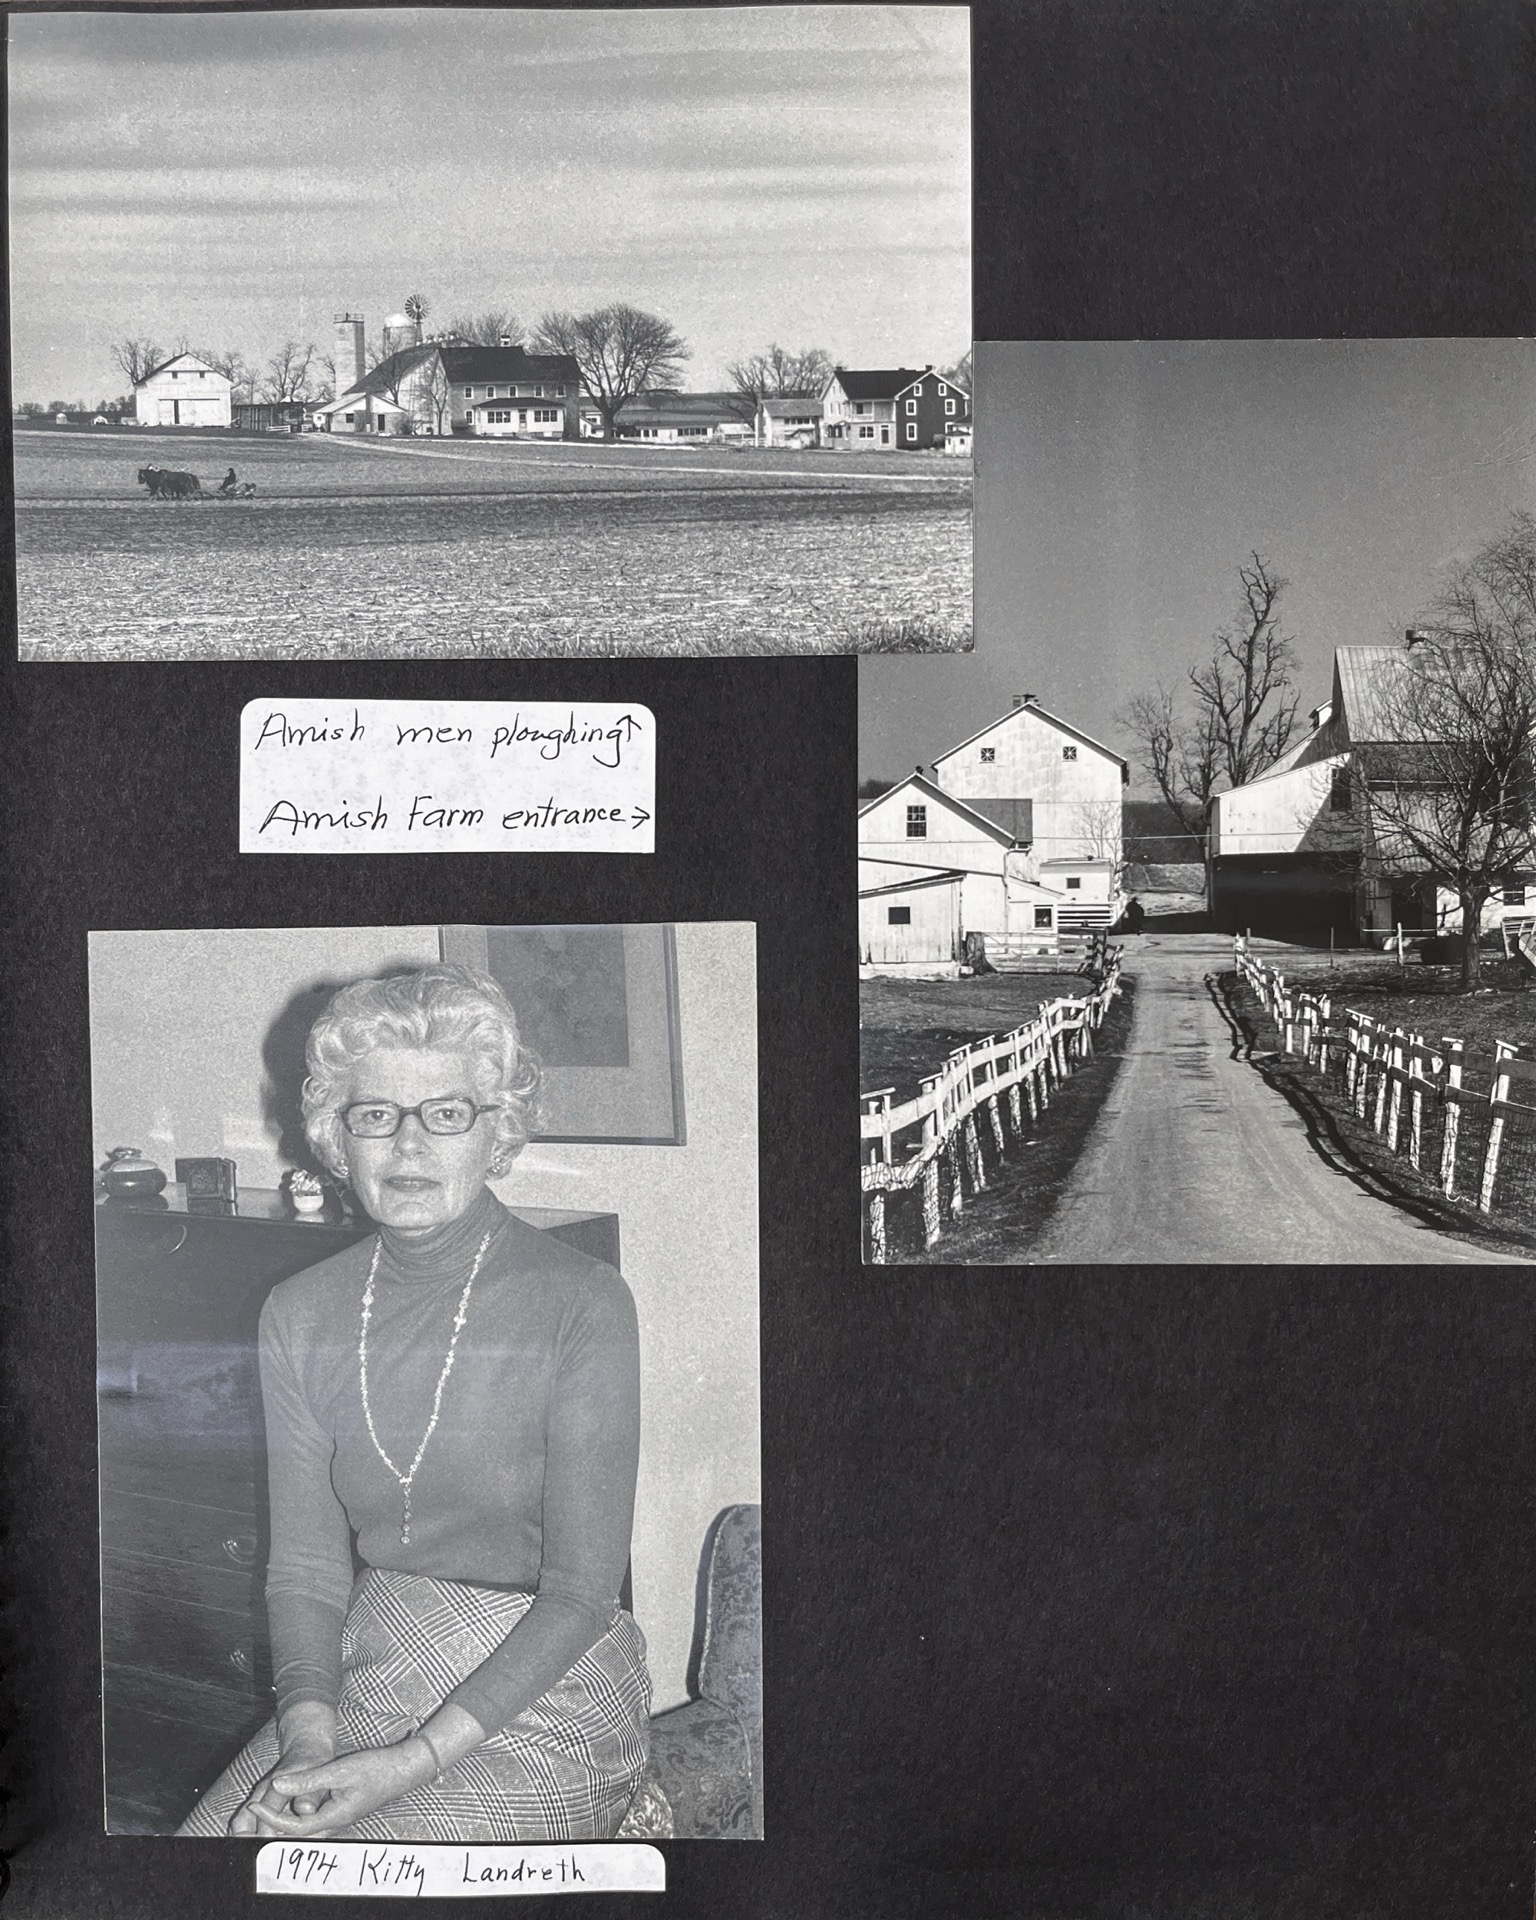 Amish men ploughing↑
Amish Farm entrance→
1974 Kitty Landreth